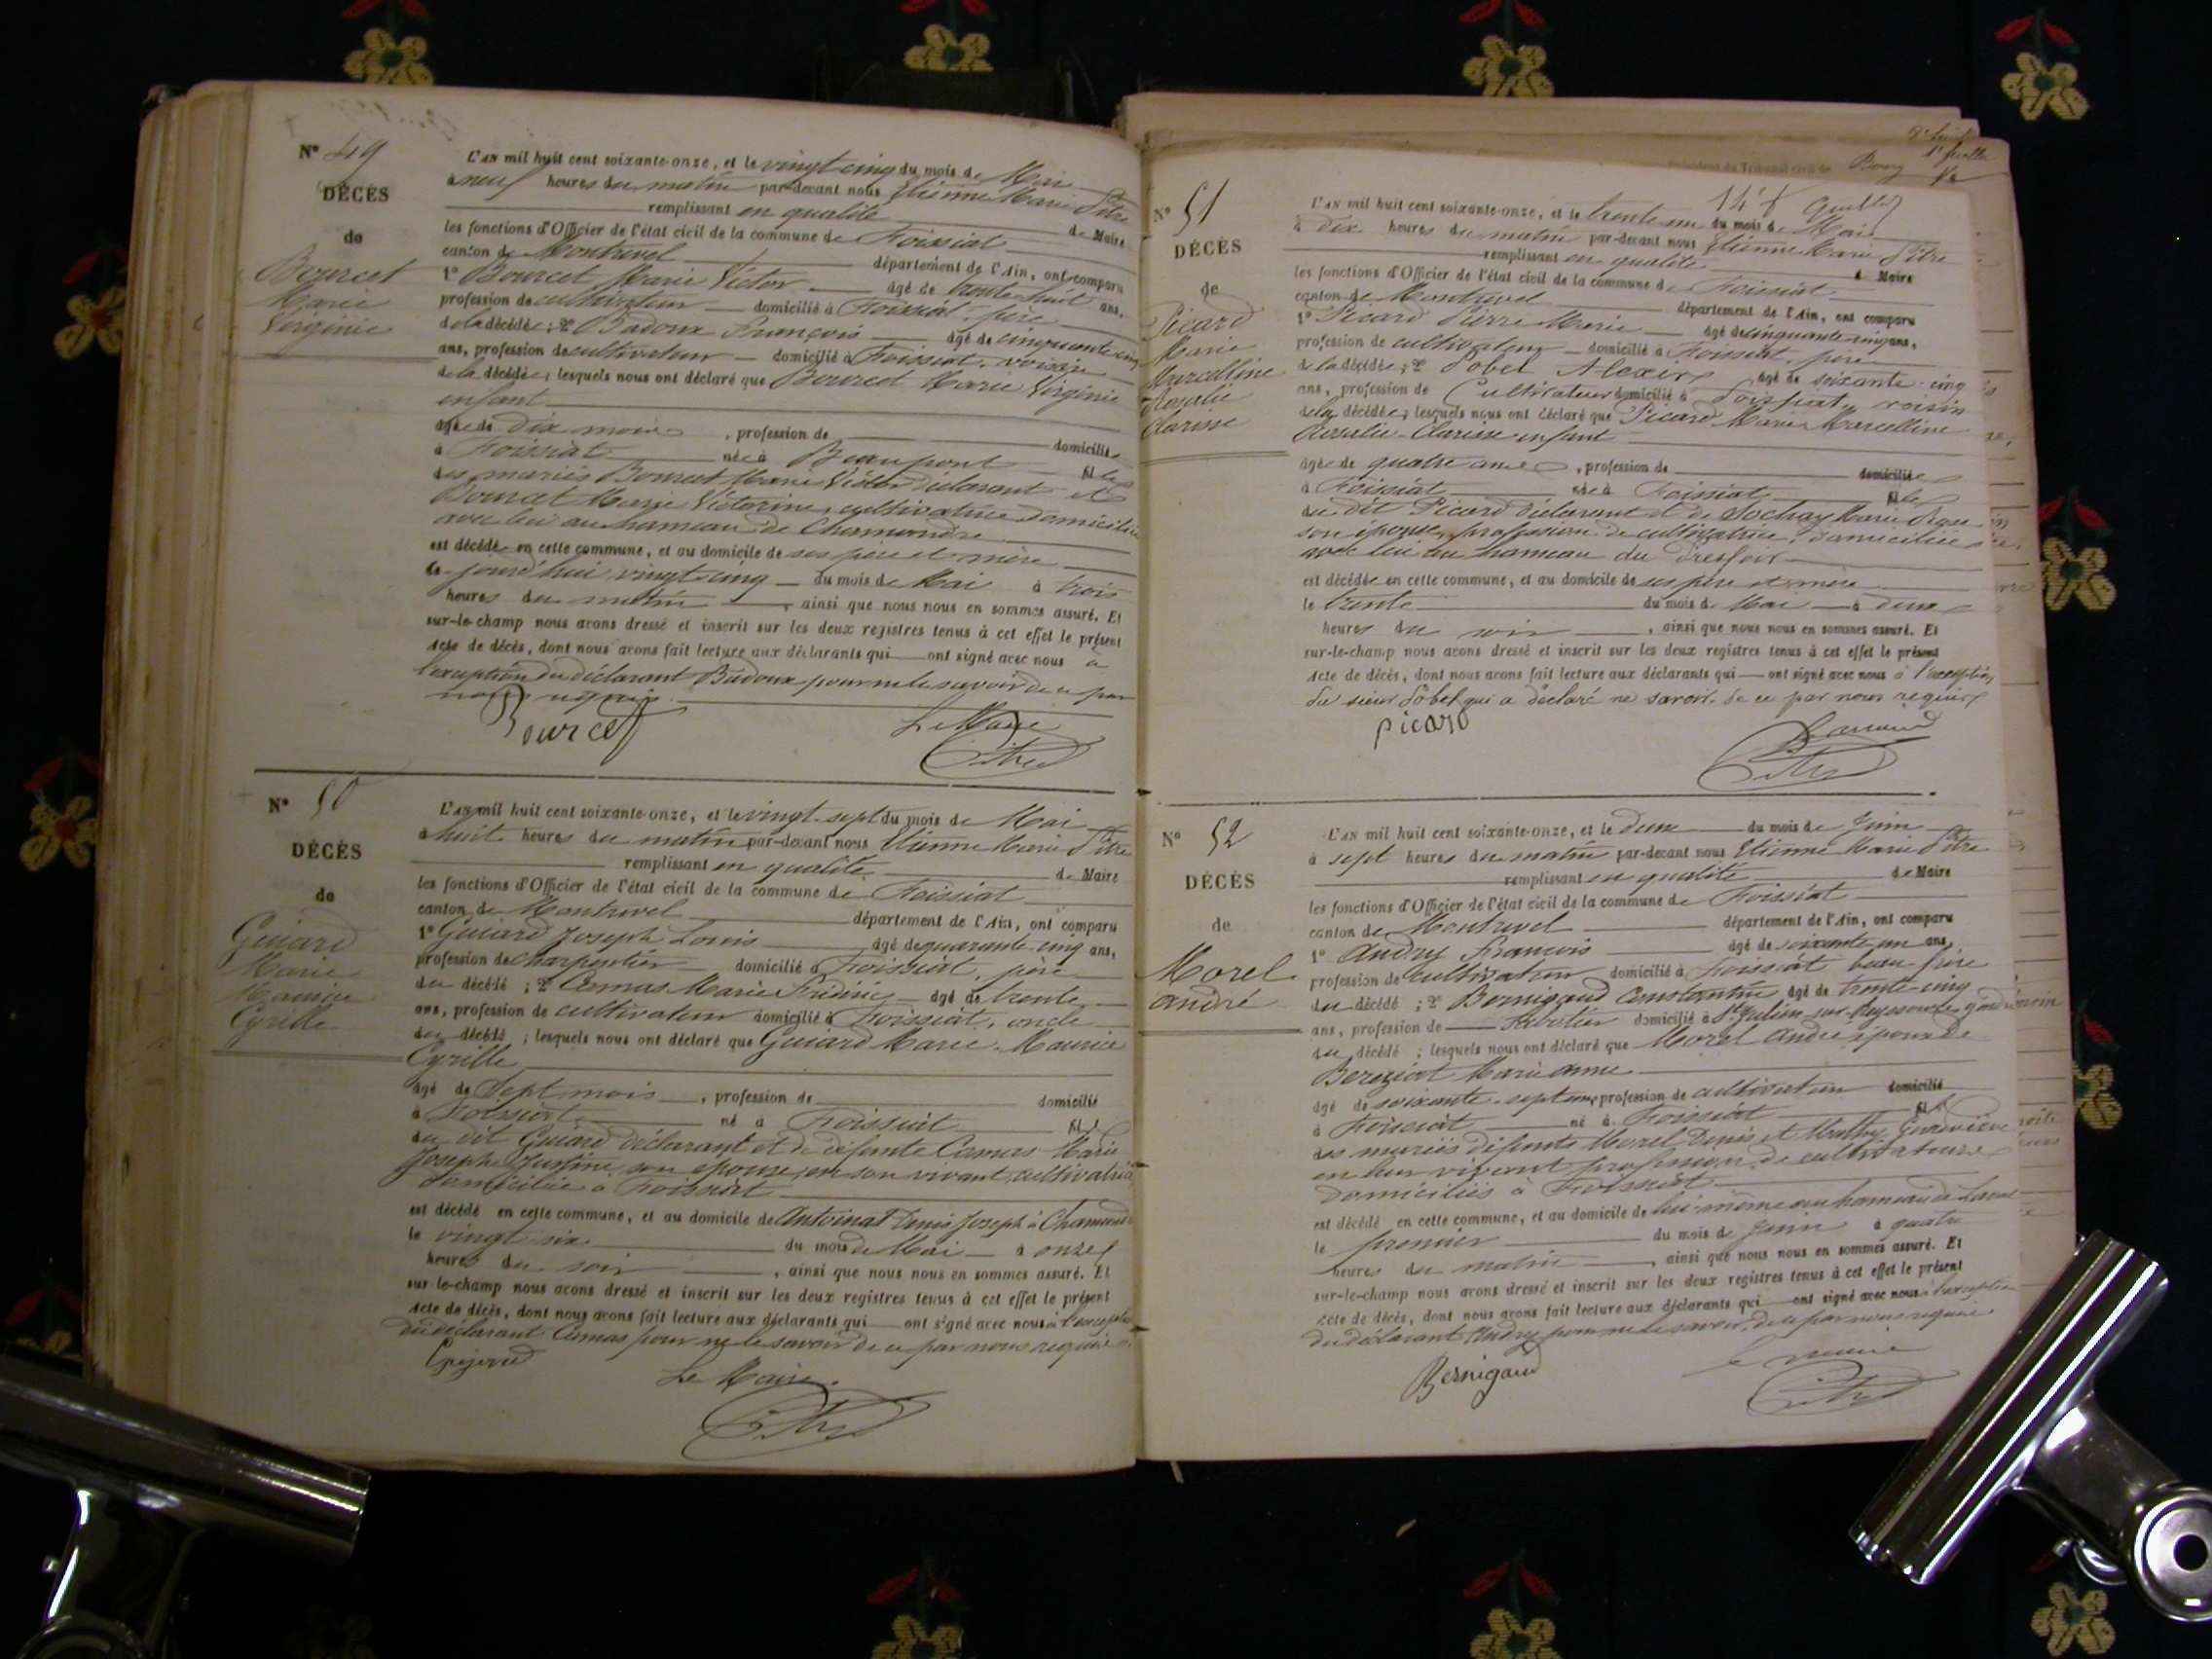 N° 49
DÉCÈS
de
Bourcet
Marie
Virginie
L'AN mil huit cent soixante-onze, et le vingt cinq du mois de Mai
à neuf heures du matin par-devant nous Etienne Marie Pitre
remplissant en qualité de Maire
les fonctions d'Officier de l'état civil de la commune de Foissiat
canton de Montrevel département de l'Ain, ont comparu
1° Bourcet Marie Victor âgé de trente huit ans,
profession de cultivateur domicilié à Foissiat, père
de la décédée; 2° Badoux François âgé de cinquante cinq
ans, profession de cultivateur domicilié à Foissiat, voisin
de la décédée; lesquels nous ont déclaré que Bourcet Marie Virginie
enfant
âgée de dix mois, profession de domiciliée
à Foissiat née à Beaupont fille
des mariés Bourcet Marie Victor déclarant et
Bourcet Marie Victorine, cultivatrice domiciliée
avec lui au hameau de Chamandre
est décédée en cette commune, et au domicile de ses père et mère
jourd'hui vingt cinq du mois de Mai à trois
heures du matin, ainsi que nous nous en sommes assuré. Et
sur-le-champ nous avons dressé et inscrit sur les deux registres tenus à cet effet le présent
Acte de décès, dont nous avons fait lecture aux déclarants qui ont signé avec nous à
l'exception du déclarant Badoux pour ne le savoir de ce par
nous requis.
Bourcet
Le Maire
Pitre
N° 50
DÉCÈS
de
Guiard
Marie
Maurice
Cyrille
L'AN mil huit cent soixante-onze, et le vingt-sept du mois de Mai
à huit heures du matin par-devant nous Etienne Marie Pitre
remplissant en qualité de Maire
les fonctions d'Officier de l'état civil de la commune de Foissiat
canton de Montrevel département de l'Ain, ont comparu
1° Guiard Joseph Louis âgé de quarante-cinq ans,
profession de charpentier domicilié à Foissiat, père
du décédé; 2° Camas Marie Frédéric âgé de trente
ans, profession de cultivateur domicilié à Foissiat, oncle
du décédé; lesquels nous ont déclaré que Guiard Marie-Maurice
Cyrille
âgé de sept mois, profession de domicilié
à Foissiat né à Foissiat fils
du dit Guiard déclarant et de défunte Camas Marie
Joseph Justine son épouse, en son vivant cultivatrice
domiciliée à Foissiat
est décédé en cette commune, et au domicile de Antoinat Denis Joseph à Chamand
le vingt six du mois de Mai à onze
heures du soir, ainsi que nous nous en sommes assuré. Et
sur le-champ nous avons dressé et inscrit sur les deux registres tenus à cet effet le présent
Acte de décès, dont nous avons fait lecture aux déclarants qui ont signé avec nous à l'exception
du déclarant Camas pour ne le savoir de ce par nous requis.
Le Maire.
Pitre
Bourg
N° 51
DÉCÈS
de
Picard
Marie
Marcelline
Rosalie
Clarisse
L'AN mil huit cent soixante-onze, et le trente un du mois de Mai
à dix heures du matin par-devant nous Etienne Marie Pitre
remplissant en qualité de Maire
les fonctions d'Officier de l'état civil de la commune de Foissiat
canton de Montrevel département de l'Ain, ont comparu
1° Picard Pierre Marie âgé de cinquante-cinq ans,
profession de cultivateur domicilié à Foissiat, père
de la décédée; 2° Pobel Alexis âgé de soixante-cinq
ans, profession de Cultivateur domicilié à Foissiat, voisin
de la décédée; lesquels nous ont déclaré que Picard Marie Marcelline
Rosalie-Clarisse enfant
âgée de quatre ans, profession de domiciliée
à Foissiat née à Foissiat fille
du dit Picard déclarant et de Sochay Marie Rose
son épouse, profession de cultivatrice, domiciliée
avec lui au hameau du
est décédée en cette commune, et au domicile de ses père et mère
le trente du mois de Mai à deux
heures du soir, ainsi que nous nous en sommes assuré. Et
sur-le-champ nous avons dressé et inscrit sur les deux registres tenus à cet effet le présent
Acte de décès, dont nous avons fait lecture aux déclarants qui ont signé avec nous à l'exception
du sieur Pobel qui a déclaré ne savoir. de ce par nous requis
picard
Pitre
N° 52
DÉCÈS
de
Morel
André
L'AN mil huit cent soixante-onze, et le deux du mois de Juin
à sept heures du matin par-devant nous Etienne Marie Pitre
remplissant en qualité de Maire
les fonctions d'Officier de l'état civil de la commune de Foissiat
canton de Montrevel département de l'Ain, ont comparu
1° Andry François âgé de soixante un ans,
profession de cultivateur domicilié à Foissiat beau-frère
du décédé; 2° Bernigaud Constantin âgé de trente-cinq
ans, profession de Sabotier domicilié à St Julien sur Reyssouze
du décédé; lesquels nous ont déclaré que Morel André époux de
Bereziat Marie Anne
âgé de soixante-sept ans, profession de cultivateur domicilié
à Foissiat né à Foissiat fils
des mariés défunts Morel Denis et Mathy Geneviève
en leur vivant profession de cultivateurs
domiciliés à Foissiat
est décédé en cette commune, et au domicile de lui-même au hameau de Laval
le premier du mois de Juin à quatre
heures du matin, ainsi que nous nous en sommes assuré. Et
sur-le-champ nous avons dressé et inscrit sur les deux registres tenus à cet effet le présent
Acte de décès, dont nous avons fait lecture aux déclarants qui ont signé avec nous à l'exception
du déclarant Andry pour ne le savoir, de ce par nous requis
Bernigaud
Le maire
Pitre